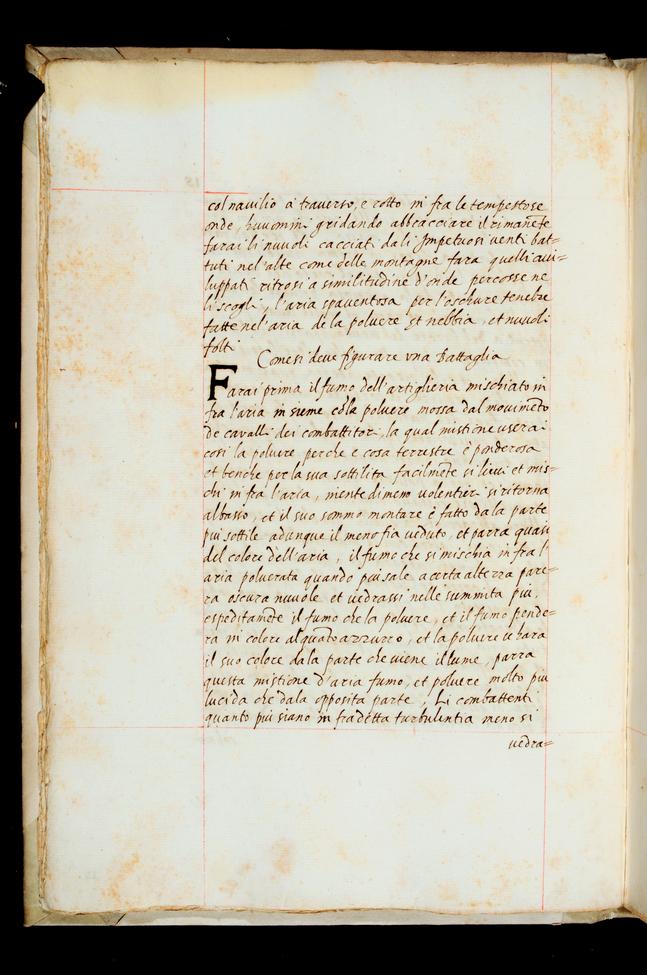 col navilio a traverso, e rotto in fra le tempestose
onde, huomini gridando abbracciare il rimanẽte
farai li nuvoli cacciati dali Impetuosi venti bat=
tuti nel'alte come delle montagne fara quelli avi=
luppati ritrosi a similitudine d'onde percosse ne
li scogli, l'aria spaventosa per l'oschure tenebre
fatte nel'aria de la polvere et nebbia, et nuvoli
folti
Come si deve figurare una Battaglia
Farai prima il fumo dell'artiglieria mischiato in
fra l'aria in sieme cõ la polvere mossa dal movimẽto
de cavalli dei combattitori, la qual mistione userai
cosi la polvere perche e cosa terrestre è ponderosa
et benche per la sua sottilita facilmẽte si lievi et mis=
chi in fra l'aria, niente di meno volentieri si ritorna
al basso, et il suo sommo montare è fatto da la parte
piu sottile adunque il meno fia veduto, et parra quasi
del colore dell'aria, il fumo che si mischia in fra l'
aria polverata quando piu sale a certa alterza pare=
ra oscura nuvole et vedrassi nelle summita piu
espeditamẽte il fumo che la polvere, et il fumo pende=
ra in colore alquãto azzurro, et la polvere
il suo colore dala parte che viene il lume, parra
questa mistione d'aria fumo, et polvere molto piu
lucida che dala opposita parte, Li combattenti
quanto piu siano in fra dẽtta turbulentia meno si
vedra=